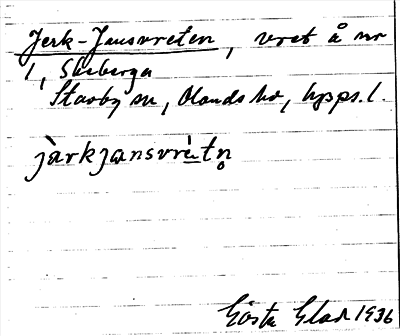 Jerk-Jansvreten, vret å nr
1, Skeberga
Stavby sn, Olands hd, Upps. l.
jàrkjansvrètn̥
Gösta Glad 1936